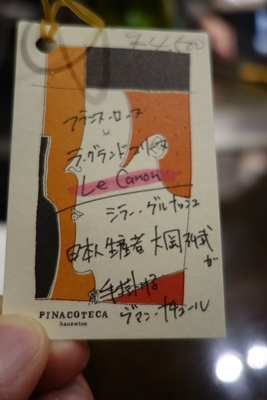 ¥4,500
フランス・ローヌ
ラ・グランド・コリーヌ
Le Canon
シラー、グルナッシュ
日本人生産者 大岡弘武
が
手掛ける
ヴァン・ナチュール
PINACOTECA
hanawine